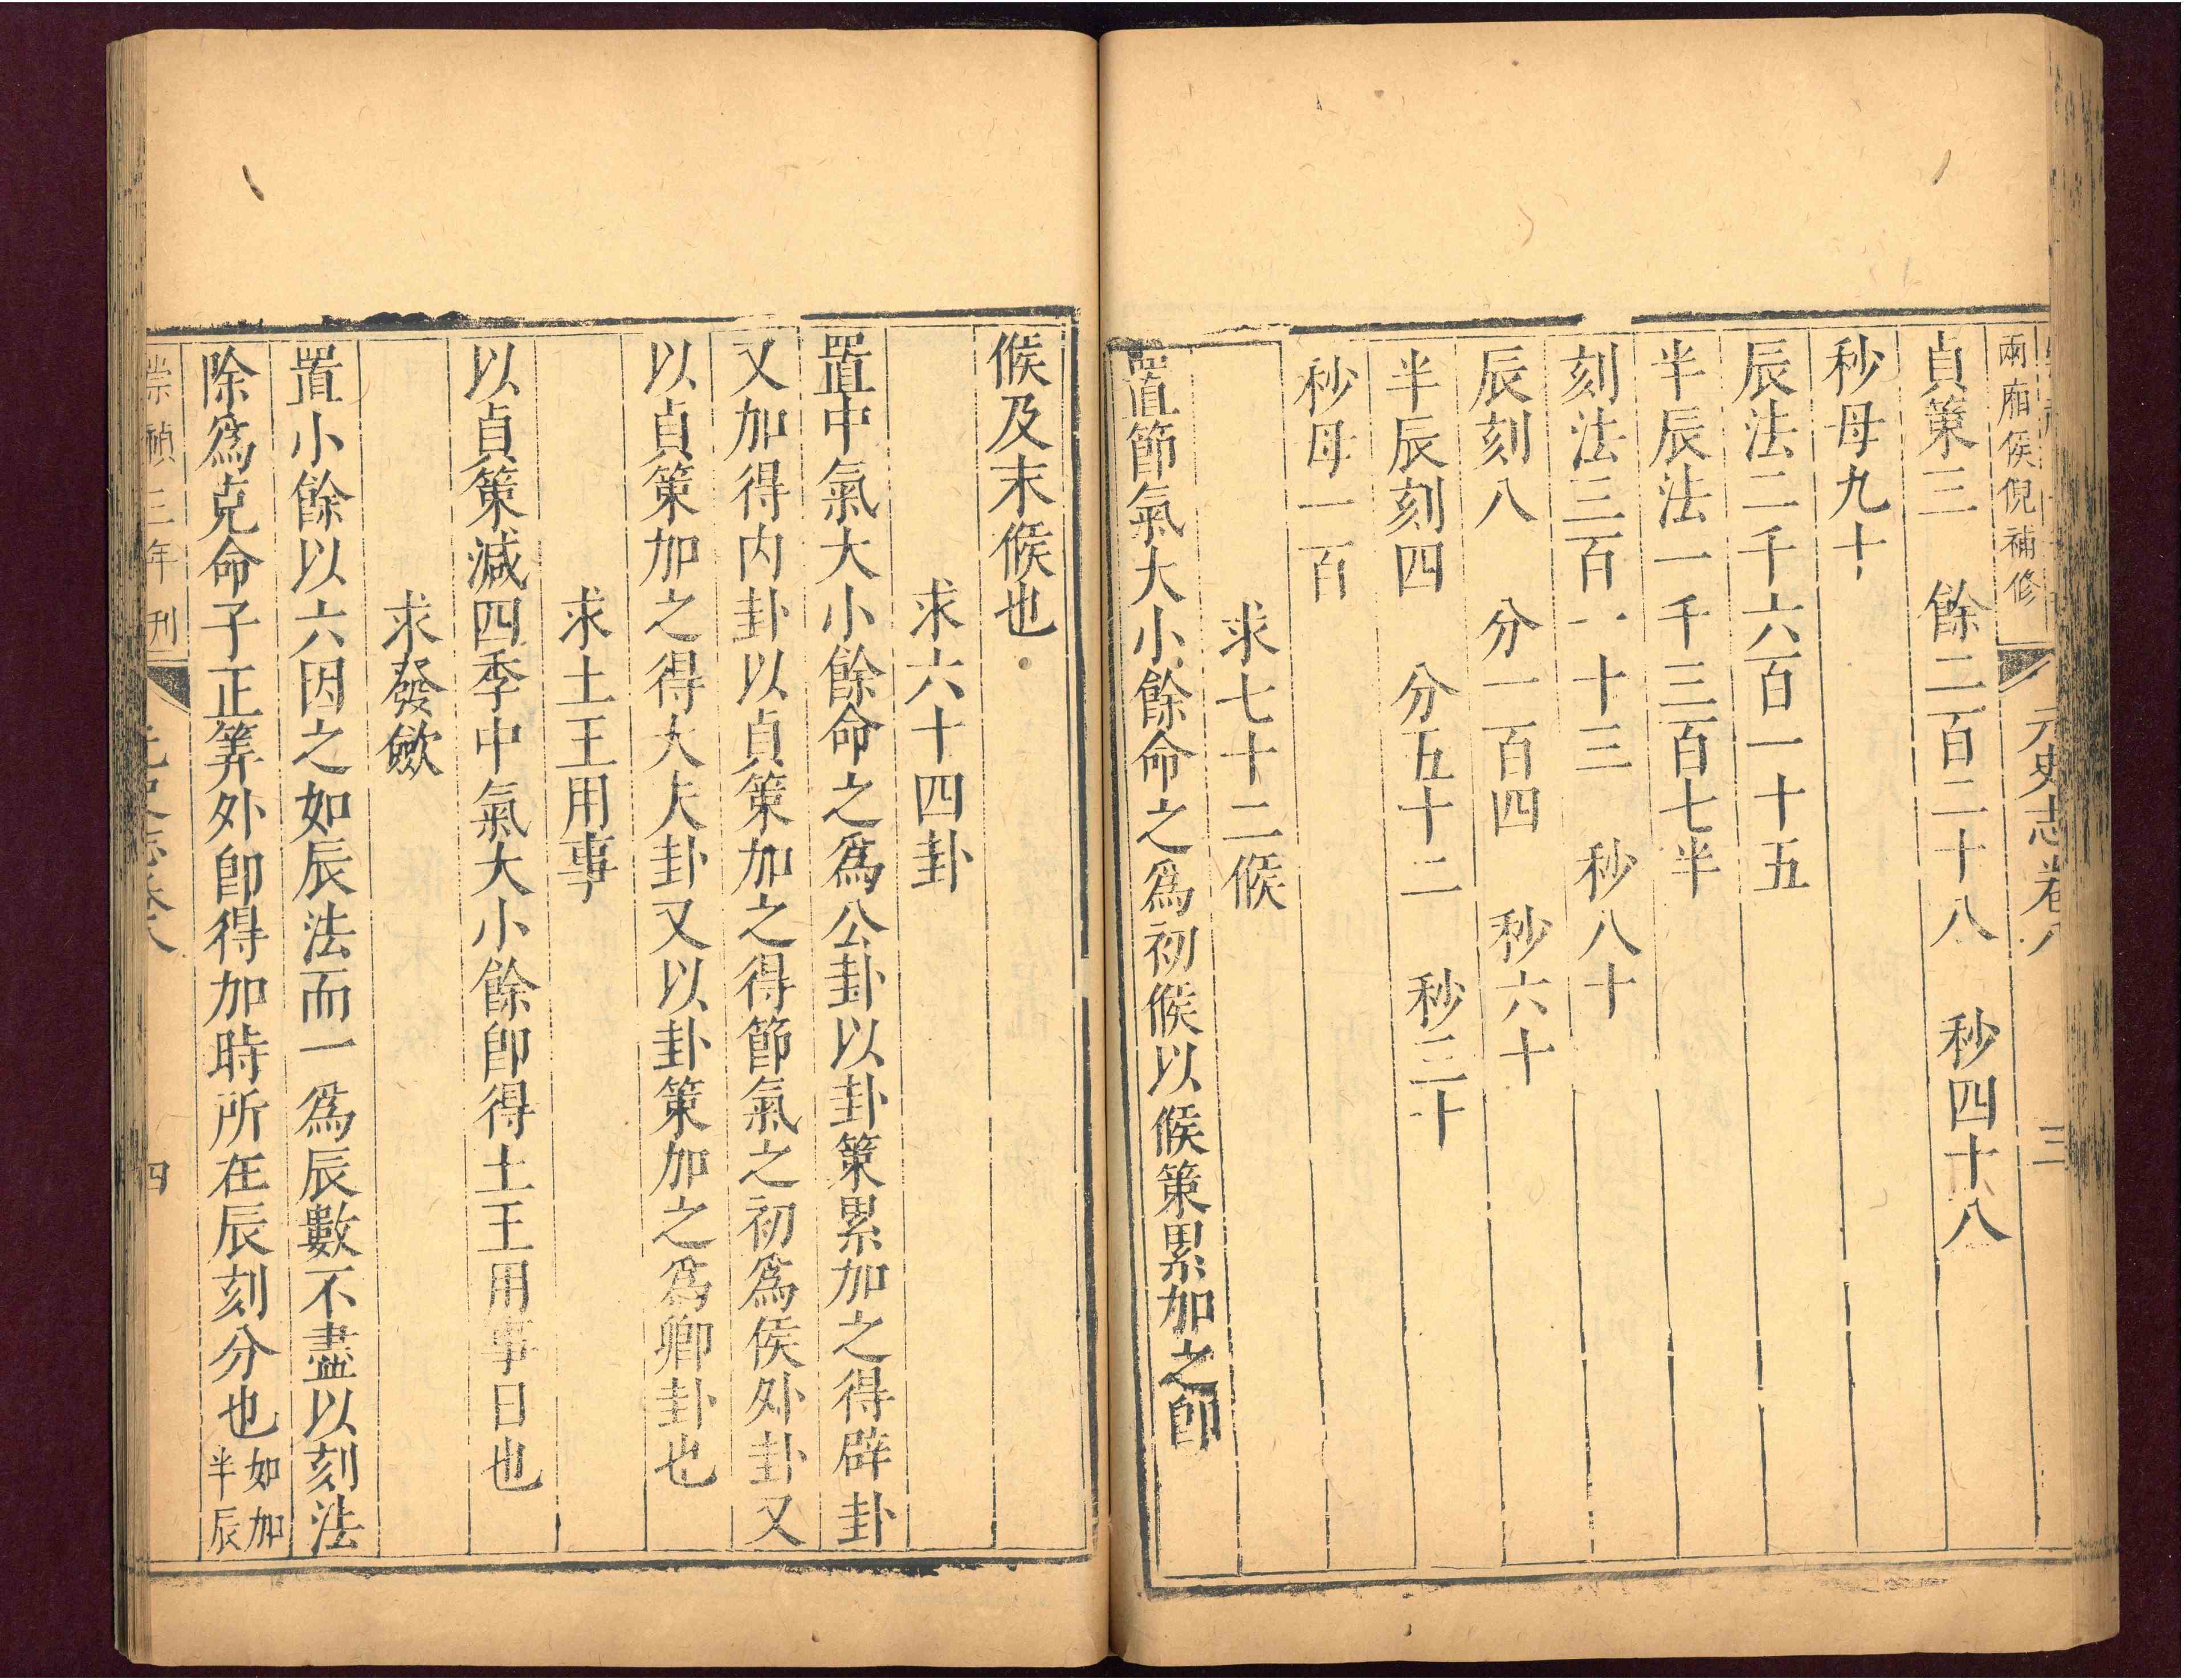 兩廂侯倪補修
元史志卷八
三
貞策三　餘二百二十八　秒四十八
秒母九十
辰法二千六百一十五
半辰法一千三百七半
刻法三百一十三　秒八十
辰刻八　分一百四　秒六十
半辰刻四　分五十二　秒三十
秒母一百
求七十二候
置節氣大小餘命之爲初候以候策累加之卽
候及末候也
求六十四卦
置中氣大小餘命之爲公卦以卦策累加之得辟卦
又加得内卦以貞策加之得節氣之初爲侯外卦又
以貞策加之得大夫卦又以卦策加之爲卿卦也
求土王用事
以貞策減四季中氣大小餘卽得土王用事日也
求發歛
置小餘以六因之如辰法而一爲辰數不盡以刻法
除爲克命子正筭外卽得加時所在辰刻分也如加
半辰
崇禎三年刊
元史志卷八
四